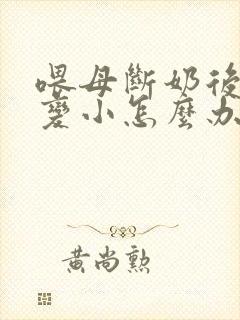 喂母斷奶後
變小怎麼办
黃尚勲